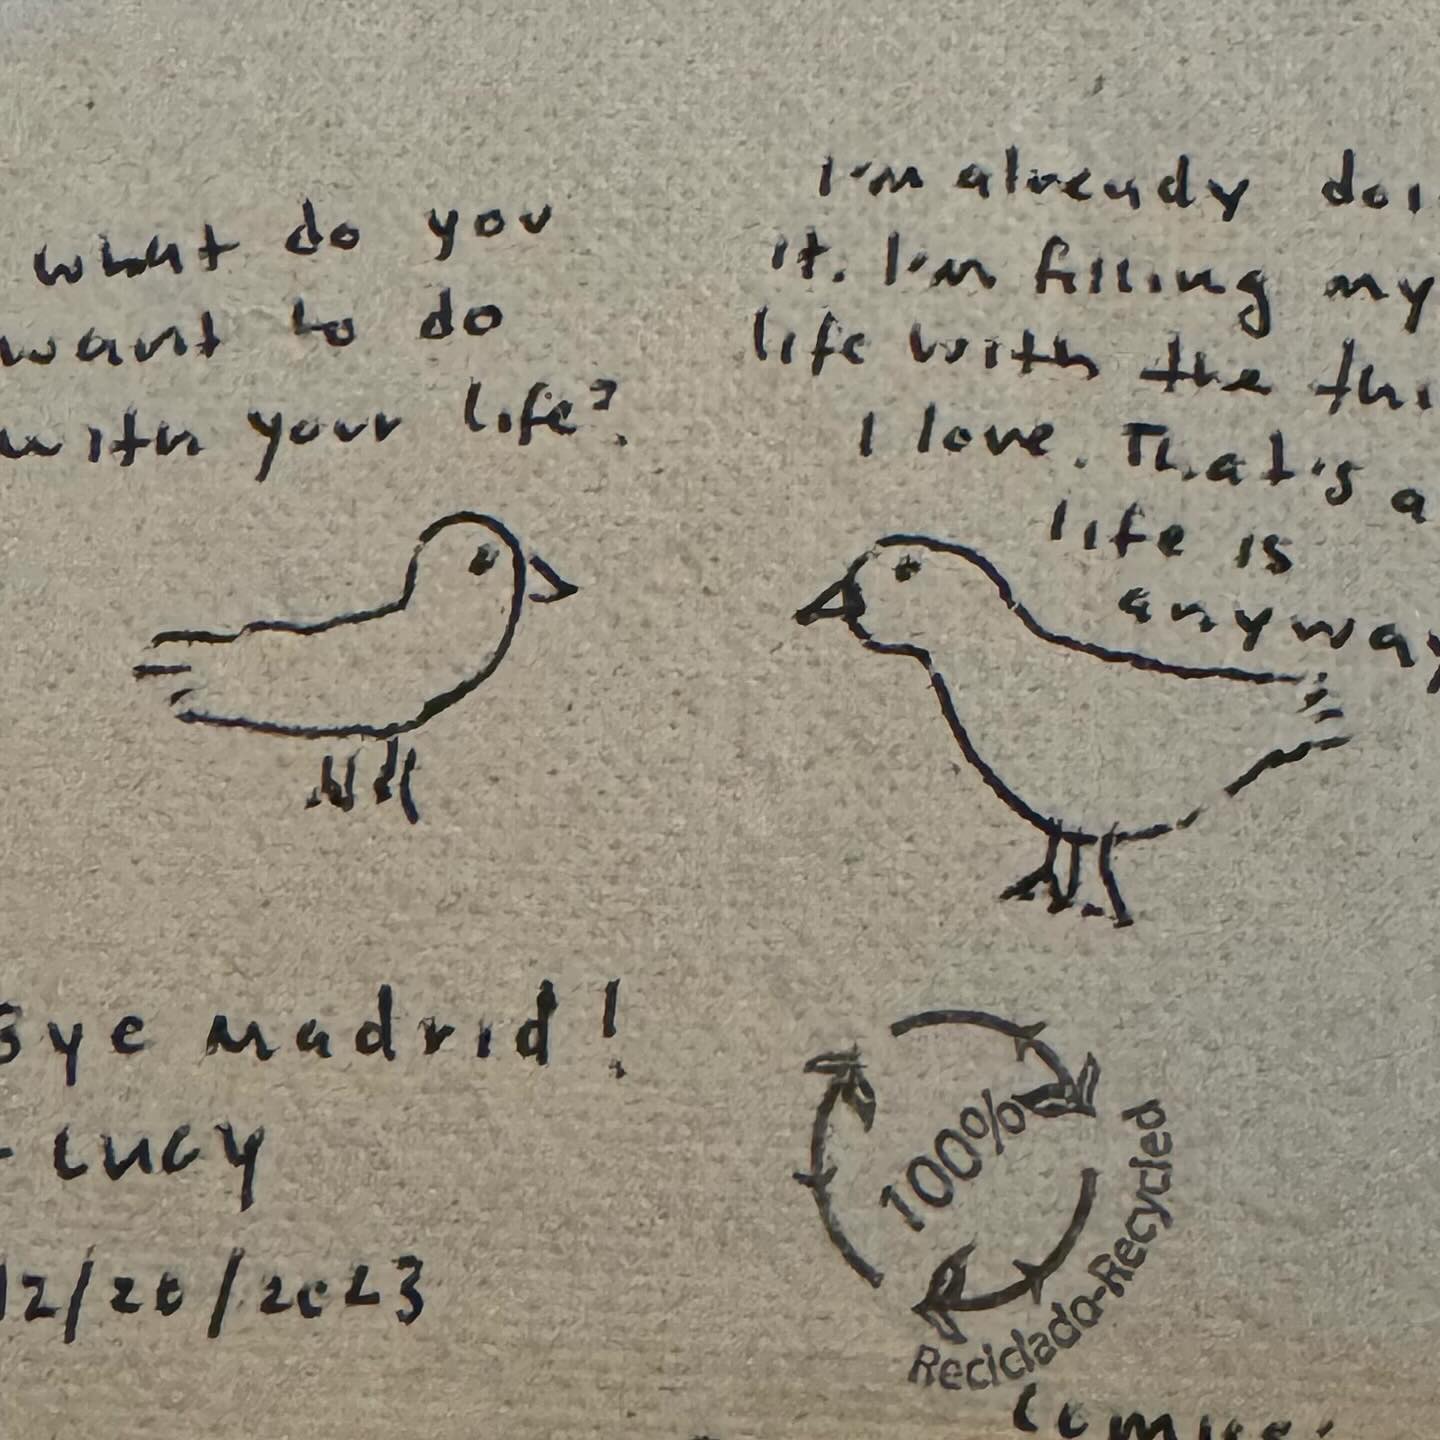 what do you
want to do
with your life?
I'm already doi
it. I'm filling my
life with the thi
I love. That's a
life is
anyway
Bye Madrid!
- Lucy
12/20/2023
100%
Reciclado-Recycled